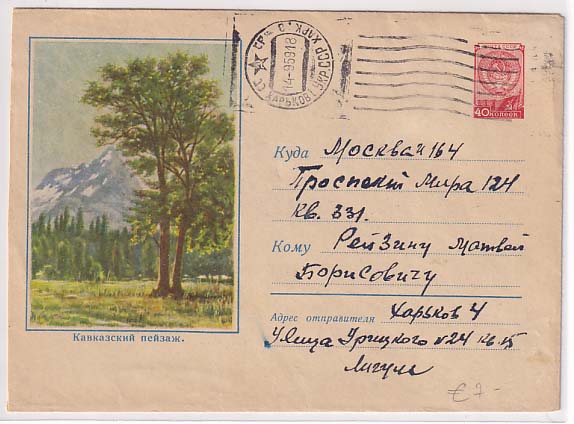 ХАРЬКОВ УКР.ССР ХАРК.
14-9 59 18
40 КОПЕЕК
Куда Москва И 164
Проспект Мира 124
кв. 331.
Кому Рейзину Матвей
Борисовичу
Адрес отправителя Харьков 4
Улица Урицкого №24 кв. 15
Кавказский пейзаж.
€ 7-